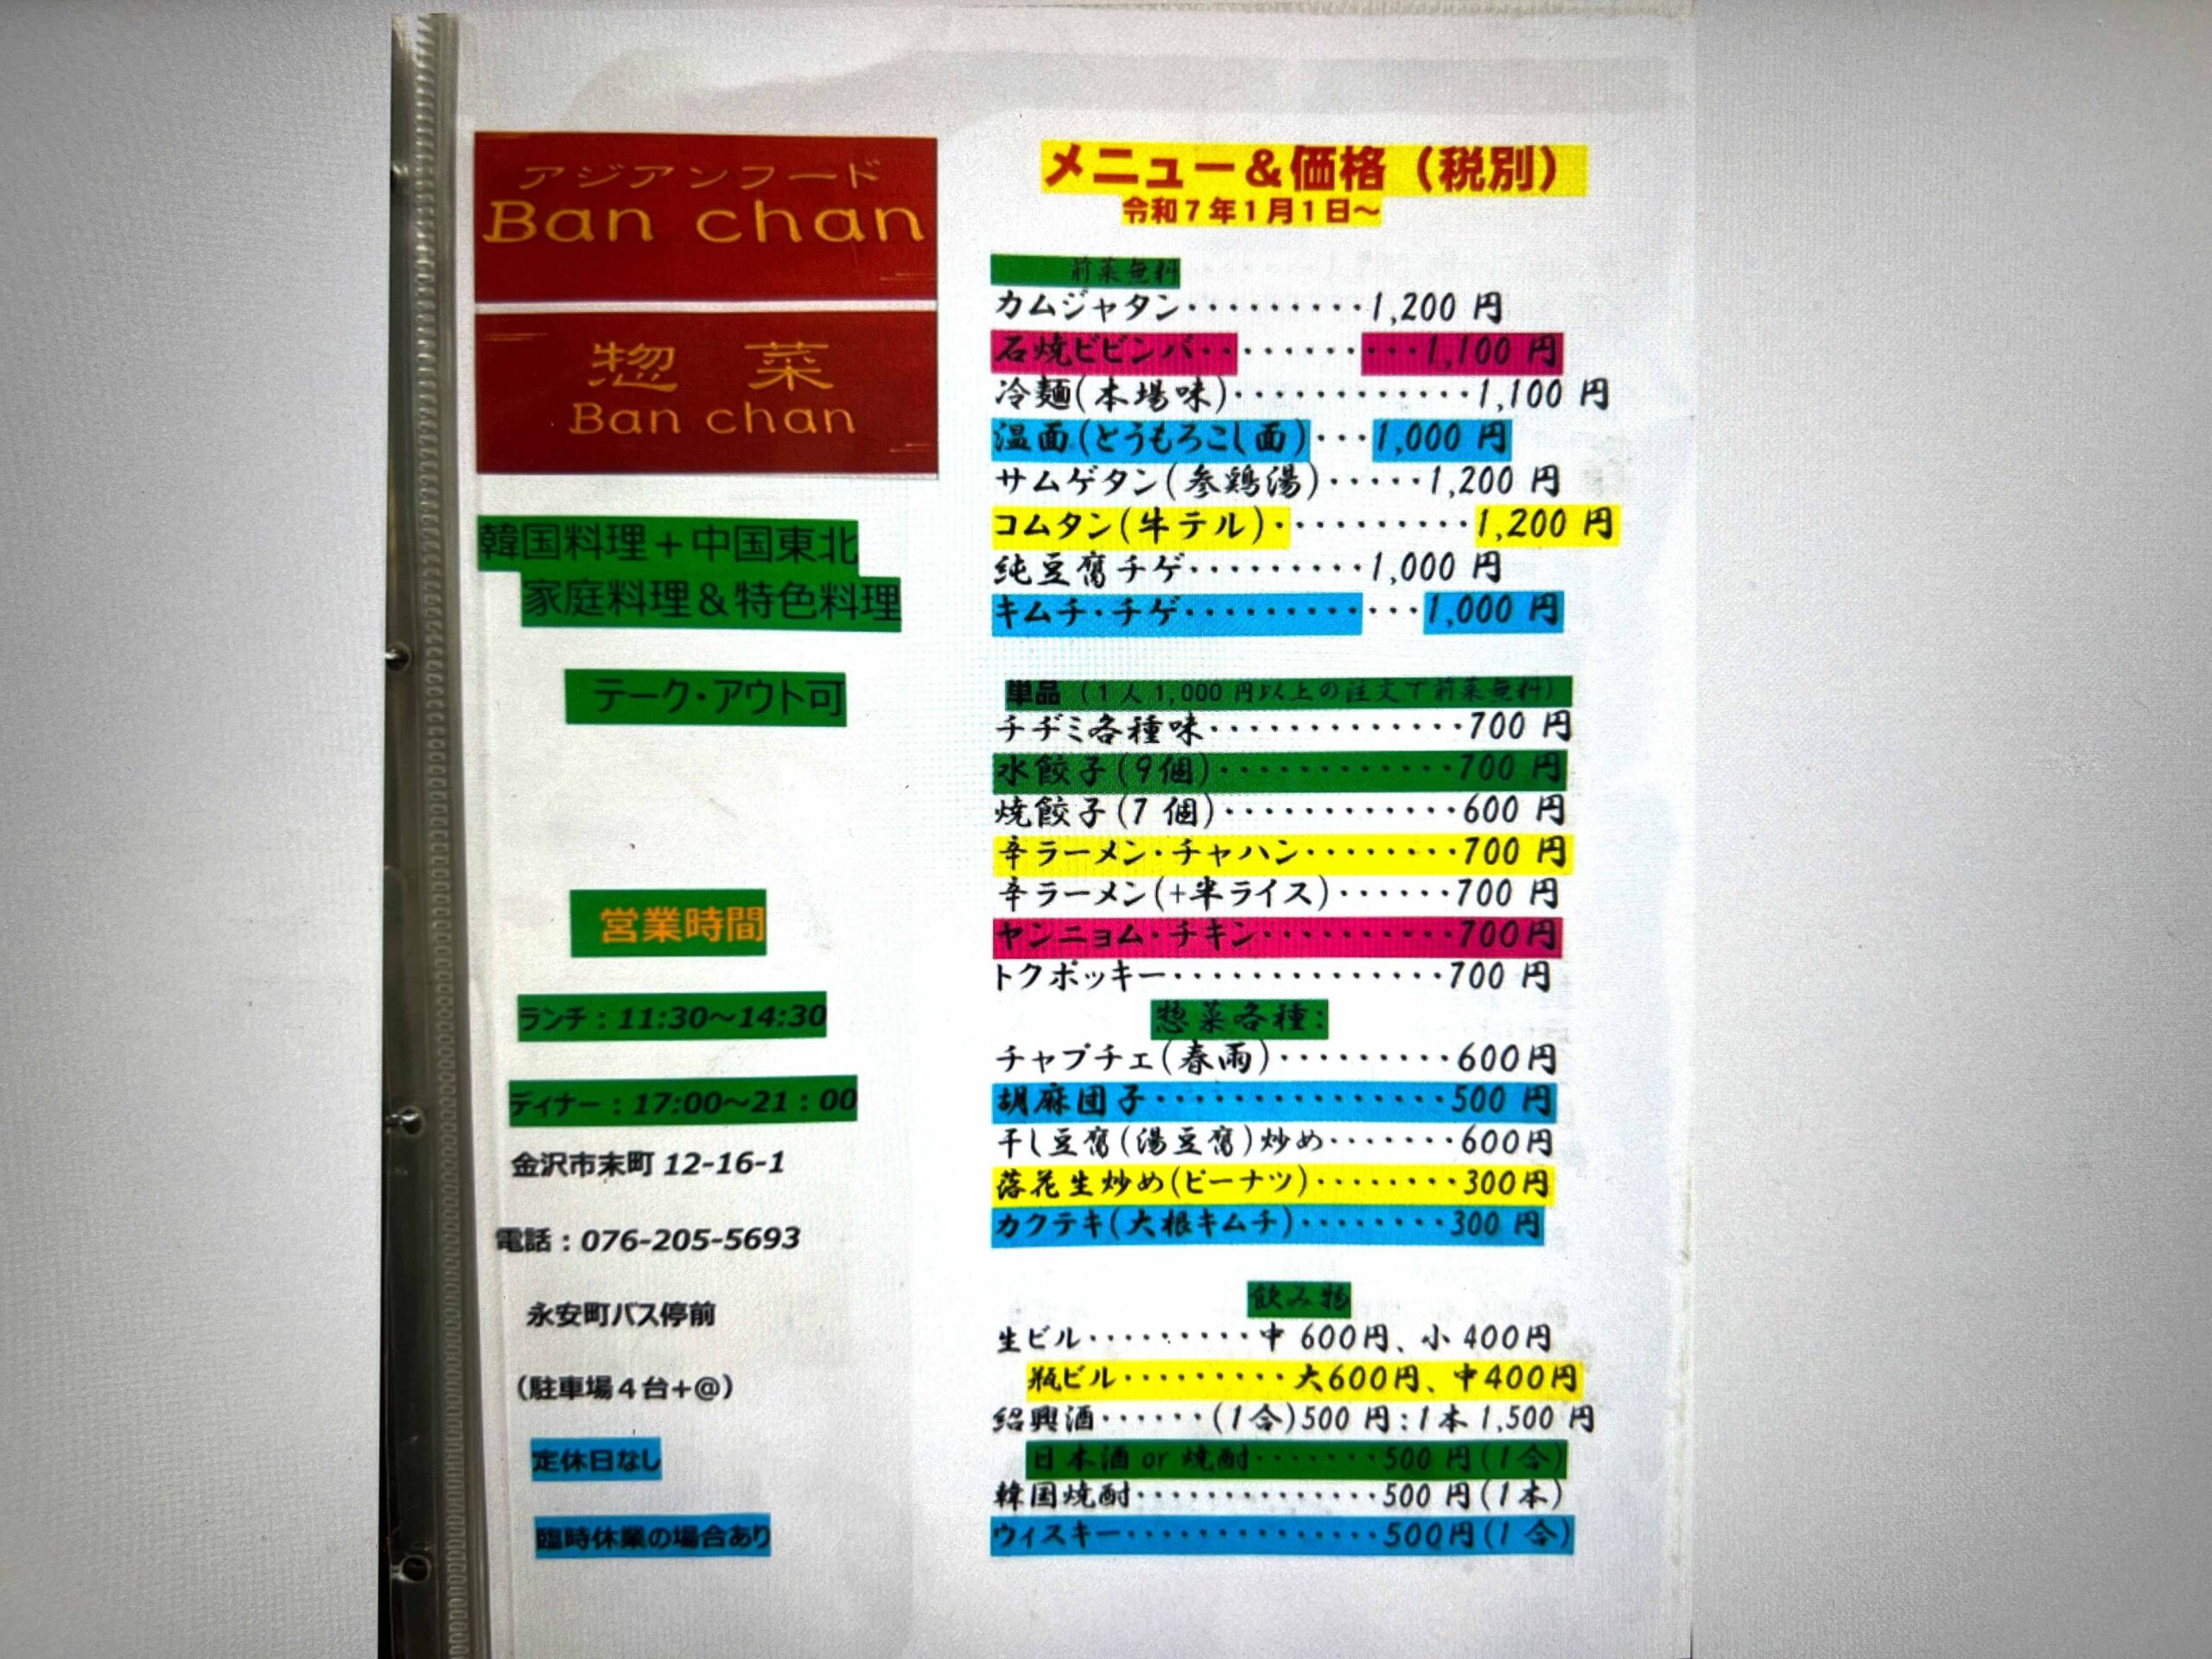 アジアンフード
Ban chan
惣 菜
Ban chan
韓国料理＋中国東北
家庭料理＆特色料理
テーク・アウト可
営業時間
ランチ：11:30～14:30
デイナー：17:00～21：00
金沢市末町 12-16-1
電話：076-205-5693
永安町バス停前
（駐車場４台+@）
定休日なし
臨時休業の場合あり
メニュー＆価格（税別）
令和７年１月１日～
前菜無料
カムジャタン・・・・・・・・・1,200 円
石焼ビビンバ・・・・・・・・・・・1,100 円
冷麺(本場味)・・・・・・・・・・・・1,100 円
温面(とうもろこし面)・・・1,000 円
サムゲタン(参鶏湯)・・・・・1,200 円
コムタン(牛テル)・・・・・・・・・・1,200 円
純豆腐チゲ・・・・・・・・・1,000 円
キムチ・チゲ・・・・・・・・・・・・1,000 円
単品（１人 1,000 円以上の注文で前菜無料）
チヂミ各種味・・・・・・・・・・・・・700 円
水餃子(9個)・・・・・・・・・・・・700 円
焼餃子(7 個)・・・・・・・・・・・・600 円
辛ラーメン・チャハン・・・・・・・・700 円
辛ラーメン(+半ライス)・・・・・・700 円
ヤンニョム・チキン・・・・・・・・・・700円
トクポッキー・・・・・・・・・・・・・・700 円
惣菜各種：
チャプチェ(春雨)・・・・・・・・・600円
胡麻団子・・・・・・・・・・・・・・・500 円
干し豆腐(湯豆腐)炒め・・・・・・・600円
落花生炒め(ピーナツ)・・・・・・・・300円
カクテキ(大根キムチ)・・・・・・・・300 円
飲み物
生ビル・・・・・・・・・中 600円、小 400円
瓶ビル・・・・・・・・・大600円、中400円
紹興酒・・・・・・(1合)500 円：1本 1,500 円
日本酒 or 焼酎・・・・・・・500 円(1合)
韓国焼酎・・・・・・・・・・・・・500 円(1本)
ウィスキー・・・・・・・・・・・・・・500円(1 合)